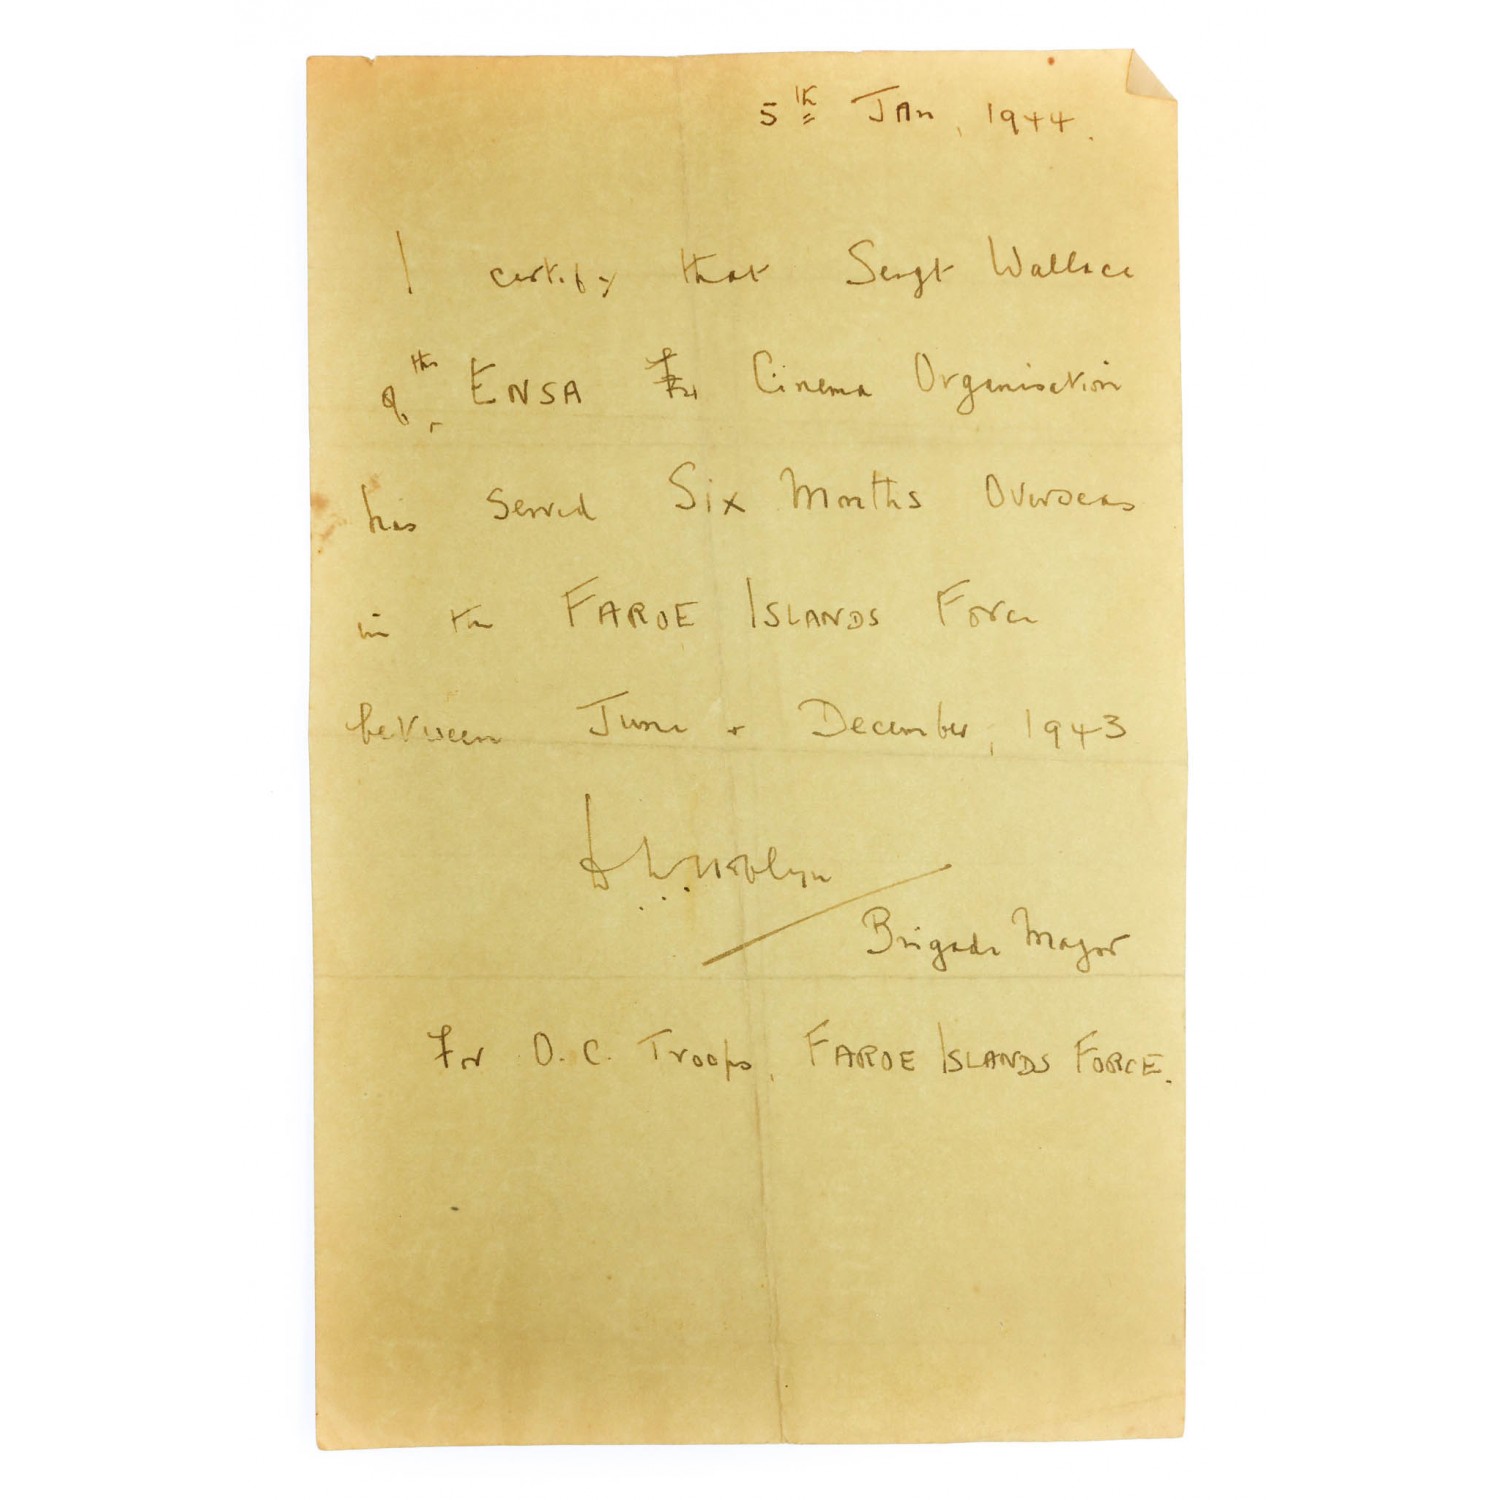 5th Jan, 1944.
I certify that Sergt Wallace
of the ENSA Cinema Organisation
has served Six Months Overseas
in the FAROE ISLANDS Force
between June + December, 1943
Brigade Major
For O.C. Troops, FAROE ISLANDS FORCE.